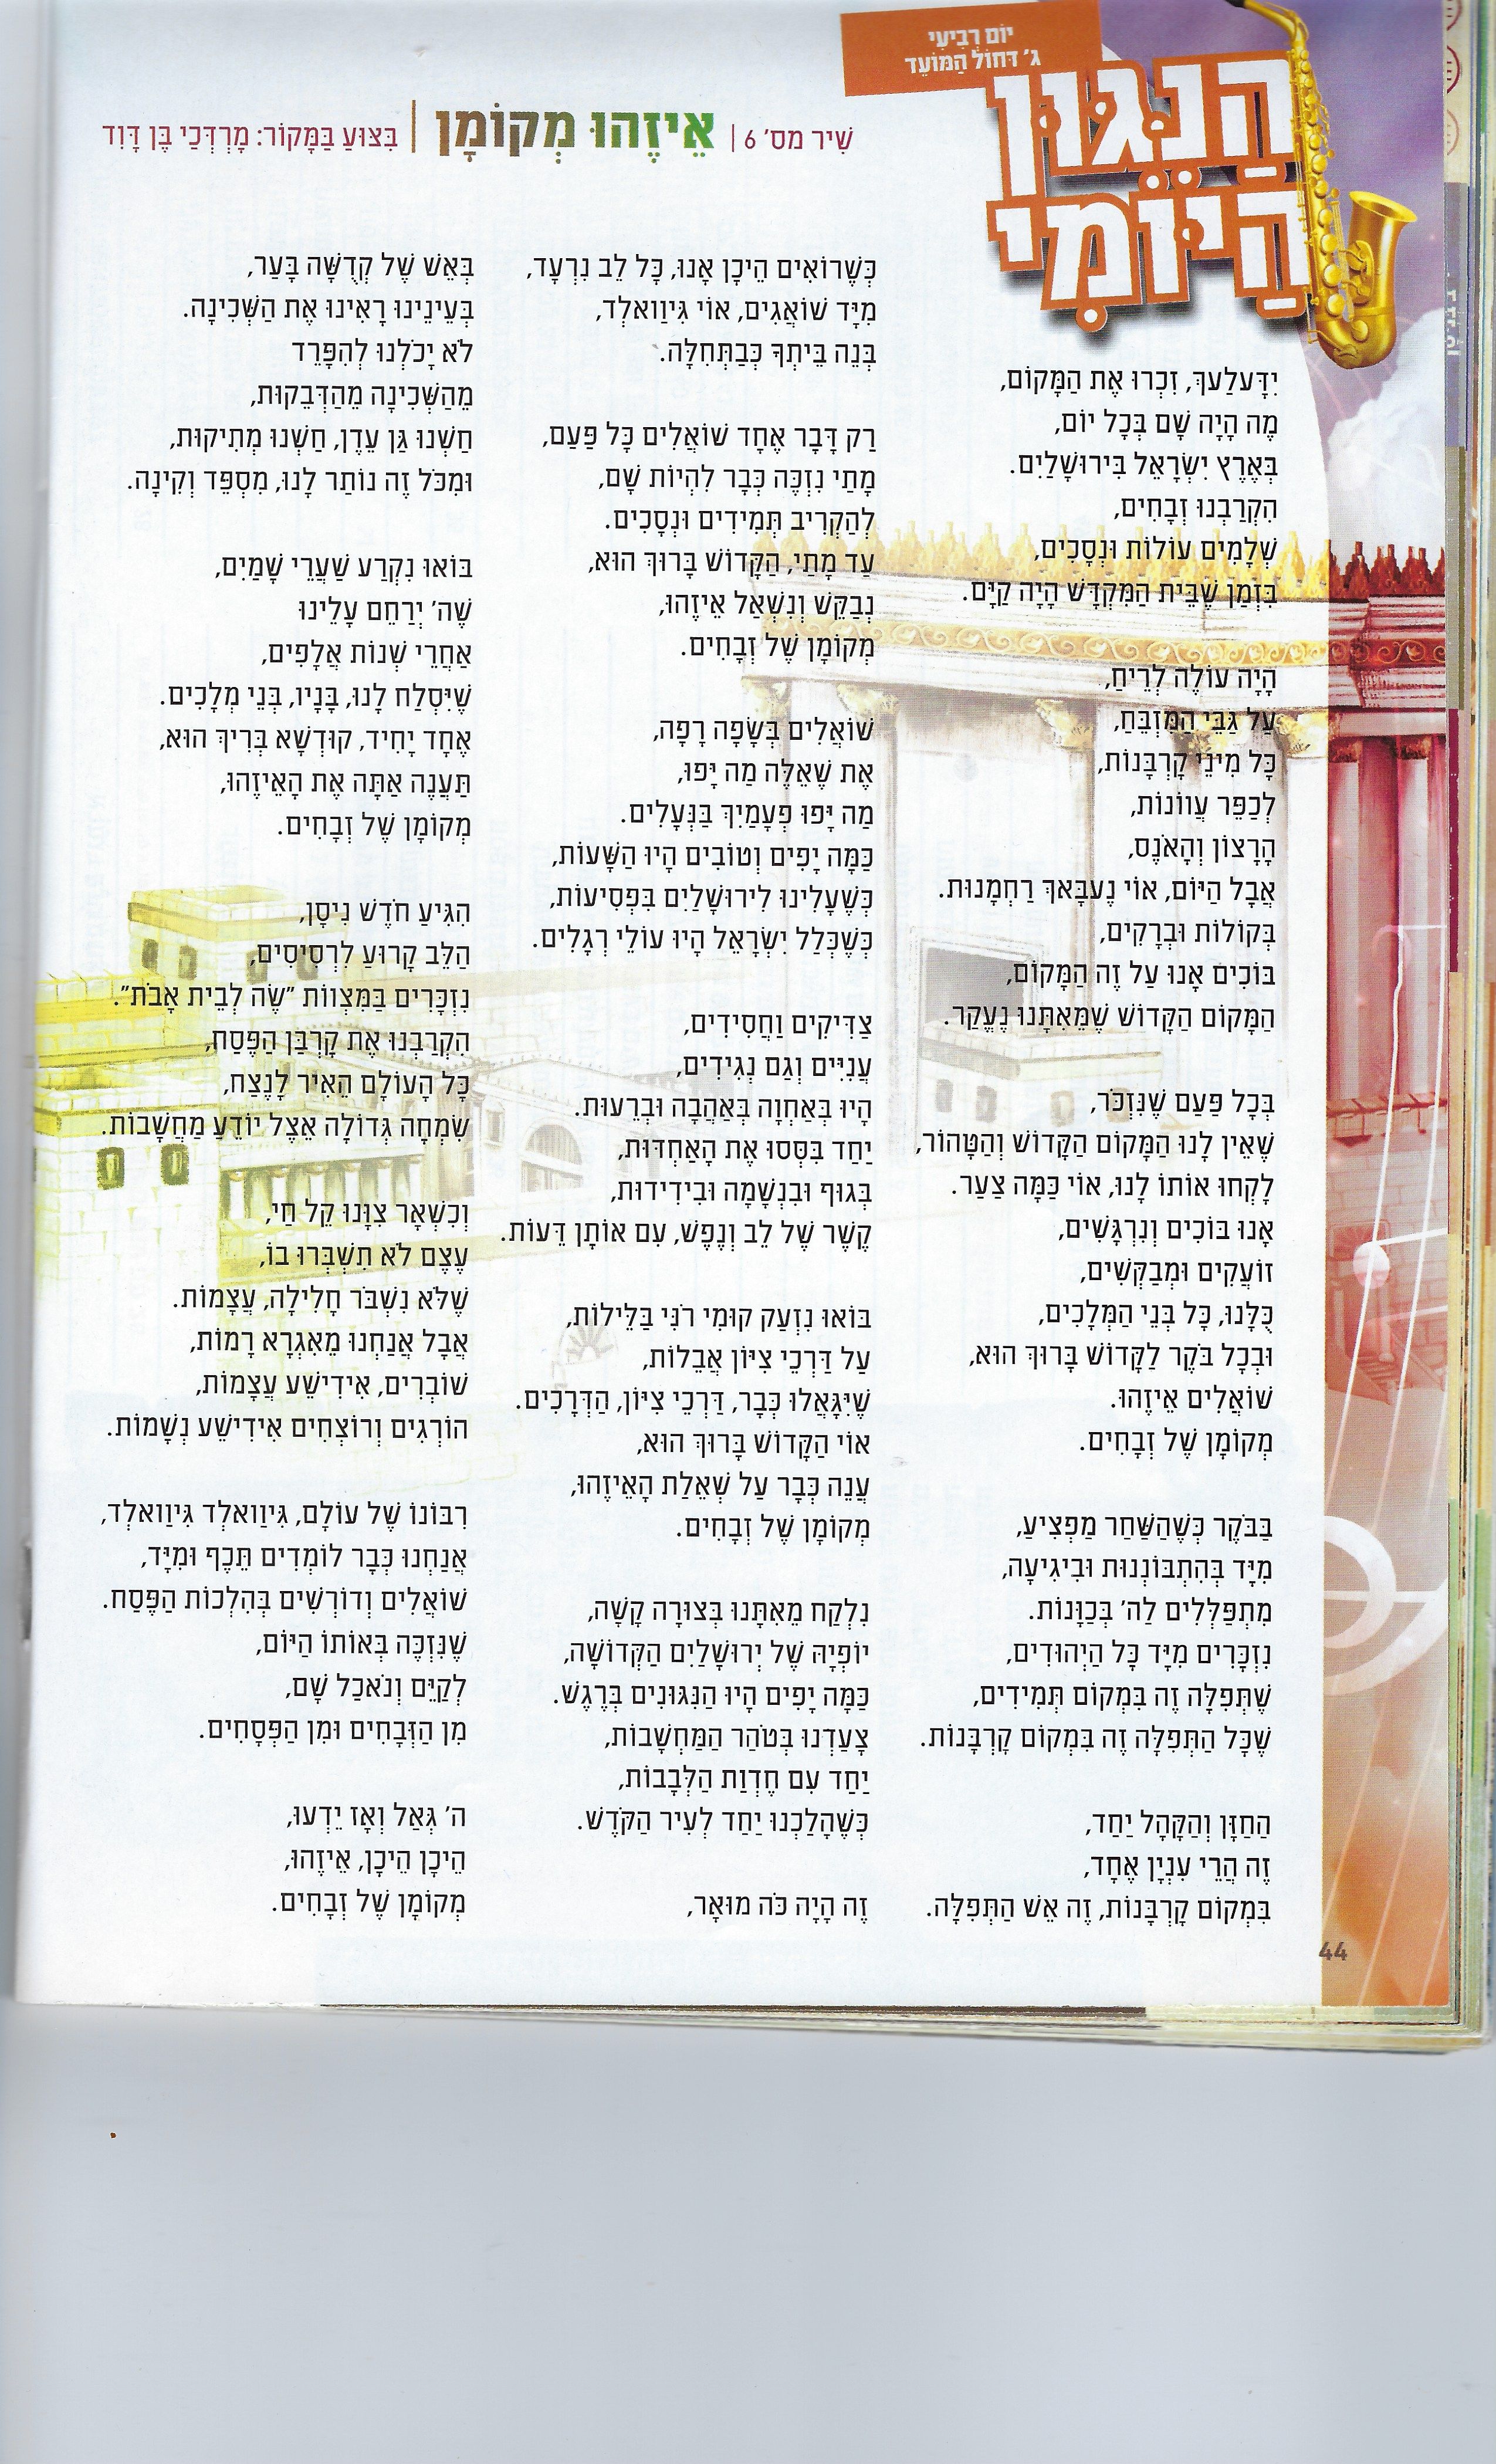 יוֹם רְבִיעִי
ג' דְּחוֹל הַמּוֹעֵד
הַנִּגּוּן
הַיּוֹמִי
שִׁיר מס' 6 | אֵיזֶהוּ מְקוֹמָן | בִּצּוּעַ בַּמָּקוֹר: מָרְדְּכַי בֶּן דָּוִד
יִדָּעלַעךְ, זִכְרוּ אֶת הַמָּקוֹם,
מֶה הָיָה שָׁם בְּכָל יוֹם,
בְּאֶרֶץ יִשְׂרָאֵל בִּירוּשָׁלַיִם.
הִקְרַבְנוּ זְבָחִים,
שְׁלָמִים עוֹלוֹת וּנְסָכִים,
בִּזְמַן שֶׁבֵּית הַמִּקְדָּשׁ הָיָה קַיָּם.
הָיָה עוֹלֶה לְרֵיחַ,
עַל גַּבֵּי הַמִּזְבֵּחַ,
כָּל מִינֵי קָרְבָּנוֹת,
לְכַפֵּר עֲווֹנוֹת,
הָרָצוֹן וְהָאֹנֶס,
אֲבָל הַיּוֹם, אוֹי נֶעבָּאךְ רַחְמָנוּת.
בְּקוֹלוֹת וּבְרָקִים,
בּוֹכִים אָנוּ עַל זֶה הַמָּקוֹם,
הַמָּקוֹם הַקָּדוֹשׁ שֶׁמֵּאִתָּנוּ נֶעֱקַר.
בְּכָל פַּעַם שֶׁנִּזְכֹּר,
שֶׁאֵין לָנוּ הַמָּקוֹם הַקָּדוֹשׁ וְהַטָּהוֹר,
לָקְחוּ אוֹתוֹ לָנוּ, אוֹי כַּמָּה צַעַר.
אָנוּ בּוֹכִים וְנִרְגָּשִׁים,
זוֹעֲקִים וּמְבַקְּשִׁים,
כֻּלָּנוּ, כָּל בְּנֵי הַמְּלָכִים,
וּבְכָל בֹּקֶר לַקָּדוֹשׁ בָּרוּךְ הוּא,
שׁוֹאֲלִים אֵיזֶהוּ.
מְקוֹמָן שֶׁל זְבָחִים.
בַּבֹּקֶר כְּשֶׁהַשַּׁחַר מַפְצִיעַ,
מִיָּד בְּהִתְבּוֹנְנוּת וּבִיגִיעָה,
מִתְפַּלְּלִים לַה' בְּכַוָּנוֹת.
נִזְכָּרִים מִיָּד כָּל הַיְּהוּדִים,
שֶׁתְּפִלָּה זֶה בִּמְקוֹם תְּמִידִים,
שֶׁכָּל הַתְּפִלָּה זֶה בִּמְקוֹם קָרְבָּנוֹת.
הַחַזָּן וְהַקָּהָל יַחַד,
זֶה הֲרֵי עִנְיָן אֶחָד,
בִּמְקוֹם קָרְבָּנוֹת, זֶה אֵשׁ הַתְּפִלָּה.
כְּשֶׁרוֹאִים הֵיכָן אָנוּ, כָּל לֵב נִרְעָד,
מִיָּד שׁוֹאֲגִים, אוֹי גִּיוַואלְד,
בְּנֵה בֵּיתְךָ כְּבַתְּחִלָּה.
רַק דָּבָר אֶחָד שׁוֹאֲלִים כָּל פַּעַם,
מָתַי נִזְכֶּה כְּבָר לִהְיוֹת שָׁם,
לְהַקְרִיב תְּמִידִים וּנְסָכִים.
עַד מָתַי, הַקָּדוֹשׁ בָּרוּךְ הוּא,
נְבַקֵּשׁ וְנִשְׁאַל אֵיזֶהוּ,
מְקוֹמָן שֶׁל זְבָחִים.
שׁוֹאֲלִים בְּשָׂפָה רָפָה,
אֶת שְׁאֵלָה מַה יָּפוּ,
מַה יָּפוּ פְעָמַיִךְ בַּנְּעָלִים.
כַּמָּה יָפִים וְטוֹבִים הָיוּ הַשָּׁעוֹת,
כְּשֶׁעָלִינוּ לִירוּשָׁלַיִם בִּפְסִיעוֹת,
כְּשֶׁכְּלַל יִשְׂרָאֵל הָיוּ עוֹלֵי רְגָלִים.
צַדִּיקִים וַחֲסִידִים,
עֲנִיִּים וְגַם נְגִידִים,
הָיוּ בְּאַחְוָה בְּאַהֲבָה וּבְרֵעוּת.
יַחַד בִּסְּסוּ אֶת הָאַחְדוּת,
בְּגוּף וּבִנְשָׁמָה וּבִידִידוּת,
קֶשֶׁר שֶׁל לֵב וְנֶפֶשׁ, עִם אוֹתָן דֵּעוֹת.
בּוֹאוּ נִזְעַק קוּמִי רֹנִּי בַּלֵּילוֹת,
עַל דַּרְכֵי צִיּוֹן אֲבֵלוֹת,
שֶׁיִּגָּאֲלוּ כְּבָר, דַּרְכֵי צִיּוֹן, הַדְּרָכִים.
אוֹי הַקָּדוֹשׁ בָּרוּךְ הוּא,
עֲנֵה כְּבָר עַל שְׁאֵלַת הָאֵיזֶהוּ,
מְקוֹמָן שֶׁל זְבָחִים.
נִלְקַח מֵאִתָּנוּ בְּצוּרָה קָשָׁה,
יוֹפְיָהּ שֶׁל יְרוּשָׁלַיִם הַקְּדוֹשָׁה,
כַּמָּה יָפִים הָיוּ הַנִּגּוּנִים בְּרֶגֶשׁ.
צָעַדְנוּ בְּטֹהַר הַמַּחְשָׁבוֹת,
יַחַד עִם חֶדְוַת הַלְּבָבוֹת,
כְּשֶׁהָלַכְנוּ יַחַד לְעִיר הַקֹּדֶשׁ.
זֶה הָיָה כֹּה מוּאָר,
בְּאֵשׁ שֶׁל קְדֻשָּׁה בָּעַר,
בְּעֵינֵינוּ רָאִינוּ אֶת הַשְּׁכִינָה.
לֹא יָכֹלְנוּ לְהִפָּרֵד
מֵהַשְּׁכִינָה מֵהַדְּבֵקוּת,
חַשְׁנוּ גַּן עֵדֶן, חַשְׁנוּ מְתִיקוּת,
וּמִכֹּל זֶה נוֹתַר לָנוּ, מִסְפֵּד וְקִינָה.
בּוֹאוּ נִקְרַע שַׁעֲרֵי שָׁמַיִם,
שֶׁה' יְרַחֵם עָלֵינוּ
אַחֲרֵי שְׁנוֹת אֲלָפִים,
שֶׁיִּסְלַח לָנוּ, בָּנָיו, בְּנֵי מְלָכִים.
אֶחָד יָחִיד, קוּדְשָׁא בְּרִיךְ הוּא,
תַּעֲנֶה אַתָּה אֶת הָאֵיזֶהוּ,
מְקוֹמָן שֶׁל זְבָחִים.
הִגִּיעַ חֹדֶשׁ נִיסָן,
הַלֵּב קָרוּעַ לִרְסִיסִים,
נִזְכָּרִים בַּמִּצְווֹת "שֶׂה לְבֵית אָבֹת".
הִקְרַבְנוּ אֶת קָרְבַּן הַפֶּסַח,
כָּל הָעוֹלָם הֵאִיר לָנֶצַח,
שִׂמְחָה גְּדוֹלָה אֵצֶל יוֹדֵעַ מַחֲשָׁבוֹת.
וְכִשְׁאָר צִוָּנוּ קֵל חַי,
עֶצֶם לֹא תִשְׁבְּרוּ בוֹ,
שֶׁלֹּא נִשְׁבֹּר חָלִילָה, עֲצָמוֹת.
אֲבָל אֲנַחְנוּ מֵאִגְרָא רָמוֹת,
שׁוֹבְרִים, אִידִישֶׁע עֲצָמוֹת,
הוֹרְגִים וְרוֹצְחִים אִידִישֶׁע נְשָׁמוֹת.
רִבּוֹנוֹ שֶׁל עוֹלָם, גִּיוַואלְד גִּיוַואלְד,
אֲנַחְנוּ כְּבָר לוֹמְדִים תֵּכֶף וּמִיָּד,
שׁוֹאֲלִים וְדוֹרְשִׁים בְּהִלְכוֹת הַפֶּסַח.
שֶׁנִּזְכֶּה בְּאוֹתוֹ הַיּוֹם,
לְקַיֵּם וְנֹאכַל שָׁם,
מִן הַזְּבָחִים וּמִן הַפְּסָחִים.
ה' גְּאַל וְאָז יֵדְעוּ,
הֵיכָן הֵיכָן, אֵיזֶהוּ,
מְקוֹמָן שֶׁל זְבָחִים.
44